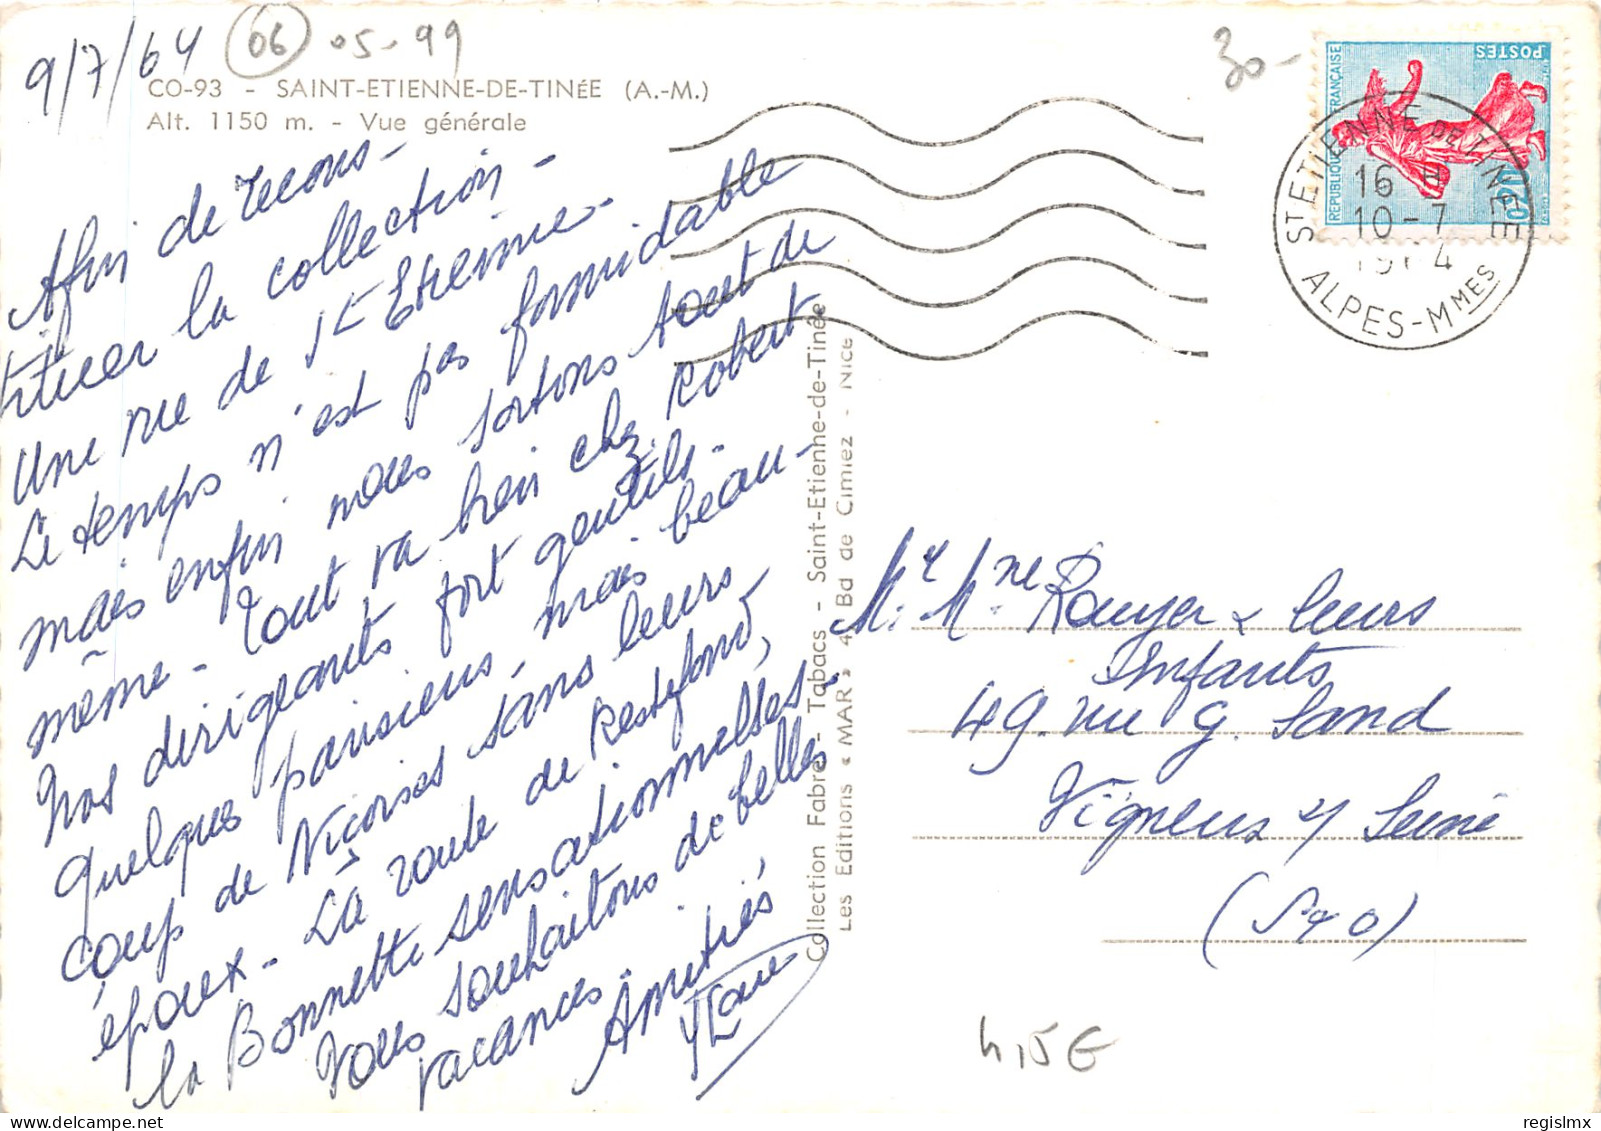 9/7/64 06 05-99
CO-93 - SAINT-ETIENNE-DE-TINÉE (A.-M.)
Alt. 1150 m. - Vue générale
Afin de recons-
tituer la collection -
Une vue de St Etienne.
Le temps n'est pas formidable
mais enfin nous sortons tout de
même - Tout va bien chez Robert
Nos dirigeants fort gentils -
Quelques parisiens, mais beau-
coup de Niçoises sans leurs
époux - La route de Restefond,
la Bonnette sensationnelles -
Vous souhaitons de belles
vacances.
Amitiés
Collection Fabre - Tabacs - Saint-Etienne-de-Tinée
Les Editions « MAR » 4 Bd de Cimiez - Nice
30-
RÉPUBLIQUE FRANÇAISE
POSTES
0,20
ST ETIENNE DE TINEE
16 H
10-7
1964
ALPES-MMES
Mr. Mme Rouyer & leurs
Enfants
49. rue G. Sand
Vigneux s/ Seine
(S & O)
4,15€
regislmx